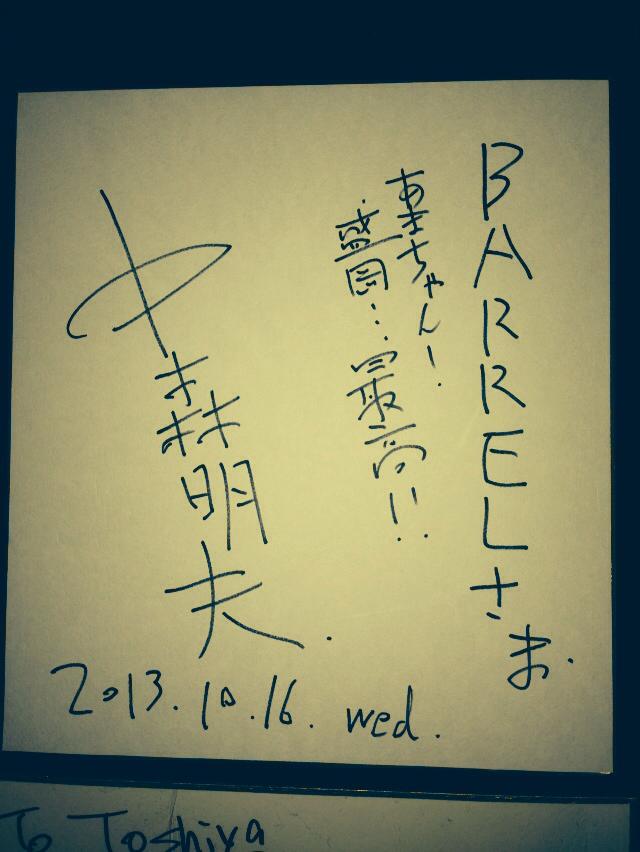 BARRELさま.
あまちゃん!
盛岡…最高!!
中森明夫.
2013.10.16. wed.
To Toshiya